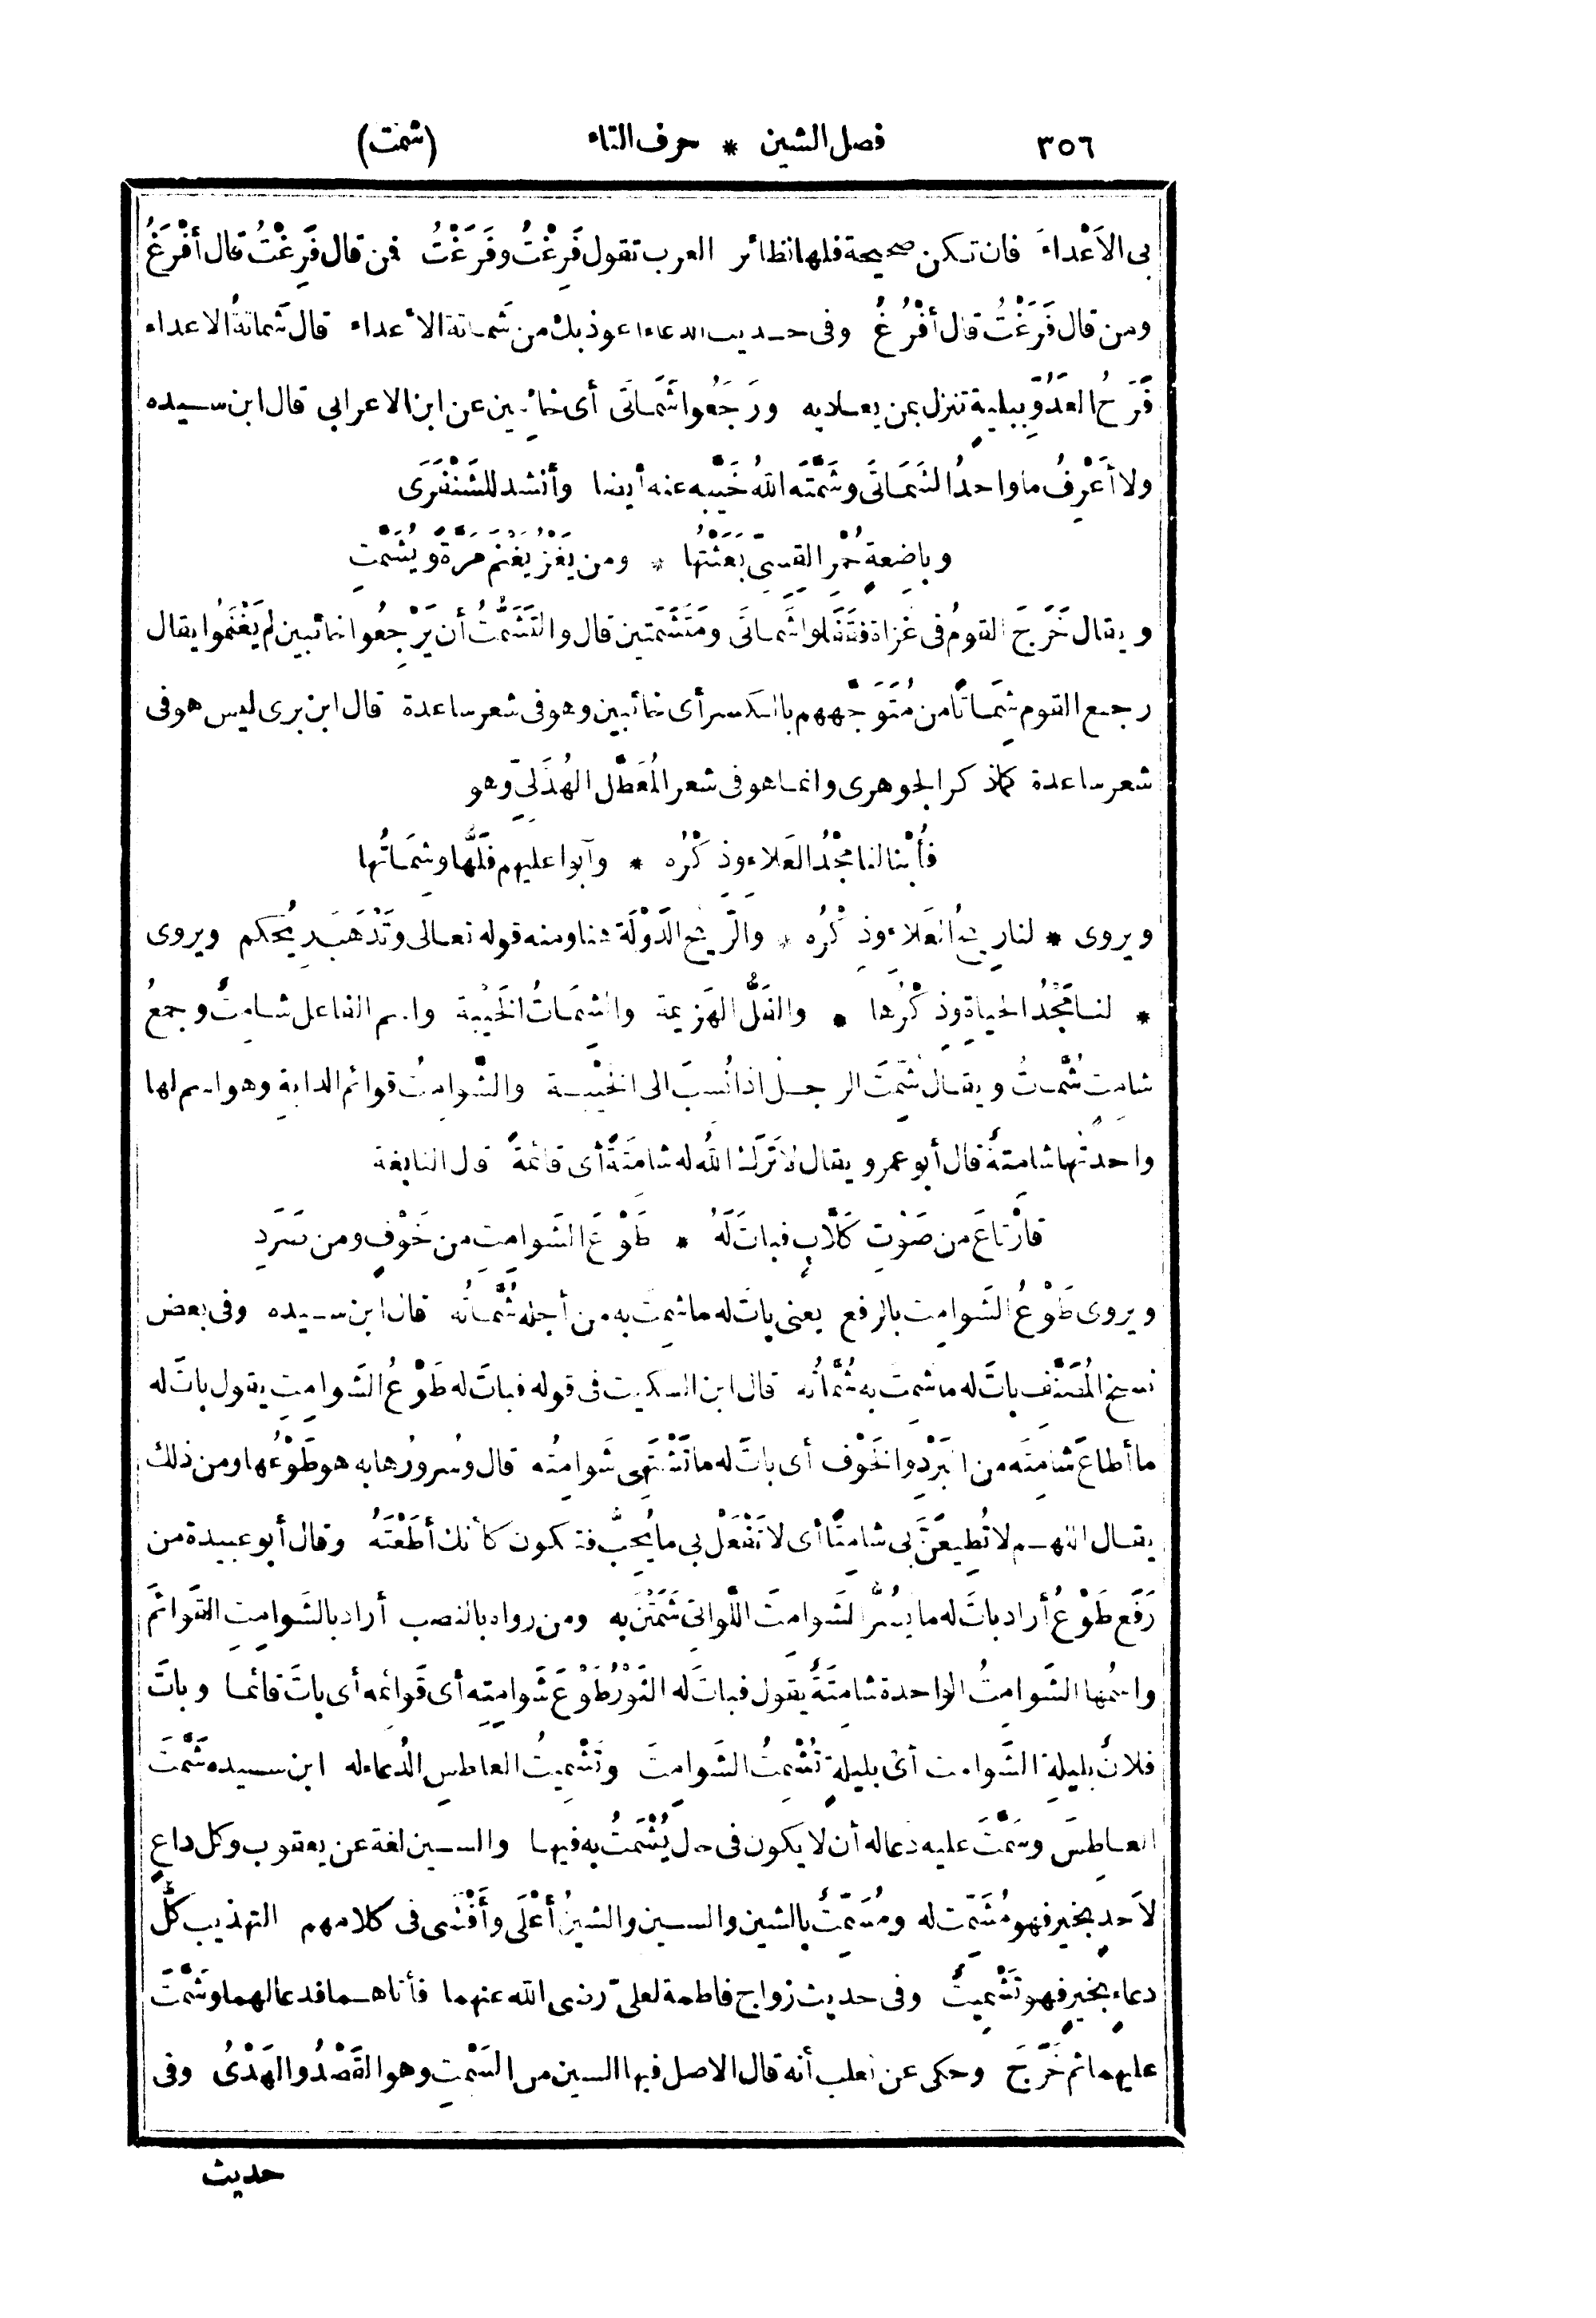 ٣٥٦ فصل الشين * حرف التاء (شمت)
بى الاَعْداءَ فان تكن صحيحة فلها نظائر العرب تقول فَرِغْتُ وفَرَغْتُ فمن قال فَرِغْتُ قال أَفْرَغُ
ومن قال فَرَغْتُ قال أَفْرُغُ وفى حديث الدعاء اعوذ بك من شَماتة الأعداء قال شَماتةُ الاعداء
فَرَحُ العَدُوِّ ببليةٍ تنزل بمن يعاديه ورَجَعُوا شَمَاتَى أى خائِبين عن ابن الاعرابى قال ابن سيده
ولا أَعْرِفُ ما واحدُ الشَمَاتَى وشَمَّتَه اللهُ خَيَّبه عنه أيضا وأنشد للشَنْفَرَى
وباضِعةٍ حُمْرِ القِسِىِّ بَعَثْتُها * ومن يَغْزُ يَغْنَمْ مَرَّةً ويُشَمَّتِ
ويقال خَرَجَ القومُ فى غَزاة فقَفَلوا شَماتَى ومُتَشَمِّتين قال والتَّشَمُّتُ أن يَرْجِعُوا خائبين لم يَغْنَمُوا يقال
رجع القوم شِمَاتًا من مُتَوَجَّههم بالكسر أى خائبين وهو فى شعر ساعدة قال ابن برى ليس هو فى
شعر ساعدة كما ذكر الجوهرى وانما هو فى شعر المُعَطَّل الهُذَلِىّ وهو
فأُبْنا لنا مَجْدُ العَلاءِ وذِكْرُه * وآبوا عليهم فَلُّها وشِمَاتُها
ويروى * لنا ريحُ العَلاءِ وذِكْرُه * والرّيح الدَّوْلَة هنا ومنه قوله تعالى وتَذْهَبَ ريحُكم ويروى
* لنا مَجْدُ الحياةِ وذِكْرُها * والفَلُّ الهَزيمة والشِمَاتُ الخَيْبة واسم الفاعل شامِتٌ وجمعُ
شامِتٍ شُمَّاتٌ ويقال شُمِّتَ الرجل اذا نُسِبَ الى الخَيْبة والشَّوامِتُ قوائم الدابة وهو اسم لها
واحدتُها شامتةٌ قال أبو عمرو يقال لا تَرَكَ اللهُ له شامتةً أى قائمةً قال النابغة
فارْتاعَ من صَوْتِ كَلّابٍ فباتَ لَهُ * طَوْعَ الشَوامِتِ من خَوْفٍ ومن صَرَدِ
ويروى طَوْعُ الشَوامِت بالرفع يعنى باتَ له ما شَمِتَ به من أجله شُمَّاتُه قال ابن سيده وفى بعض
نسخ المُصَنَّف باتَ له ما شَمِتَ به شُمَّاتُه قال ابن السكيت فى قوله فباتَ له طَوْعُ الشَوامِتِ يقول باتَ له
ما أطاعَ شامِتَه من البَرْدِ والخَوْف أى باتَ له ما تَشْتَهِى شَوامِتُه قال وسُرورُها به هو طَوْعُها ومن ذلك
يقال اللهم لا تُطِيعَنَّ بى شامِتًا أى لا تَفْعَلْ بى ما يُحِبُّ فتكون كأنك أَطَعْتَهُ وقال أبو عبيدة من
رَفَع طَوْعُ أراد باتَ له ما يَسُرُّ الشَوامِتَ اللَّواتى شَمِتْنَ به ومن رواه بالنصب أراد بالشَوامِتِ القَوائمَ
واسْمُها الشَوامِتُ الواحدة شامِتَةٌ يقول فباتَ له الثَوْرُ طَوْعَ شَوامِتِه أى قَوائِمه أى باتَ قائما وباتَ
فلانٌ بليلةِ الشَّوامِت أى بليلةٍ تُشْمِتُ الشَوامِتَ وتَشْمِيتُ العاطسِ الدُعاء له ابن سيده شَمَّتَ
العاطِسَ وسَمَّتَ عليه دعا له أن لا يكون فى حال يُشْمَتُ به فيها والسين لغة عن يعقوب وكل داعٍ
لاَحدٍ بخير فهو مُشَمِّت له ومُسَمِّتٌ بالشين والسين والشينُ أَعْلَى وأَفْشَى فى كلامهم التهذيب كلُّ
دعاءٍ بخيرٍ فهو تَشْمِيتٌ وفى حديث زواج فاطمة لعلىّ رضى الله عنهما فأتاهما فدعا لهما وشَمَّتَ
عليهما ثم خَرَجَ وحكى عن ثعلب أنه قال الاصل فيها السين من السَمْتِ وهو القَصْدُ والهَدْىُ وفى
حديث